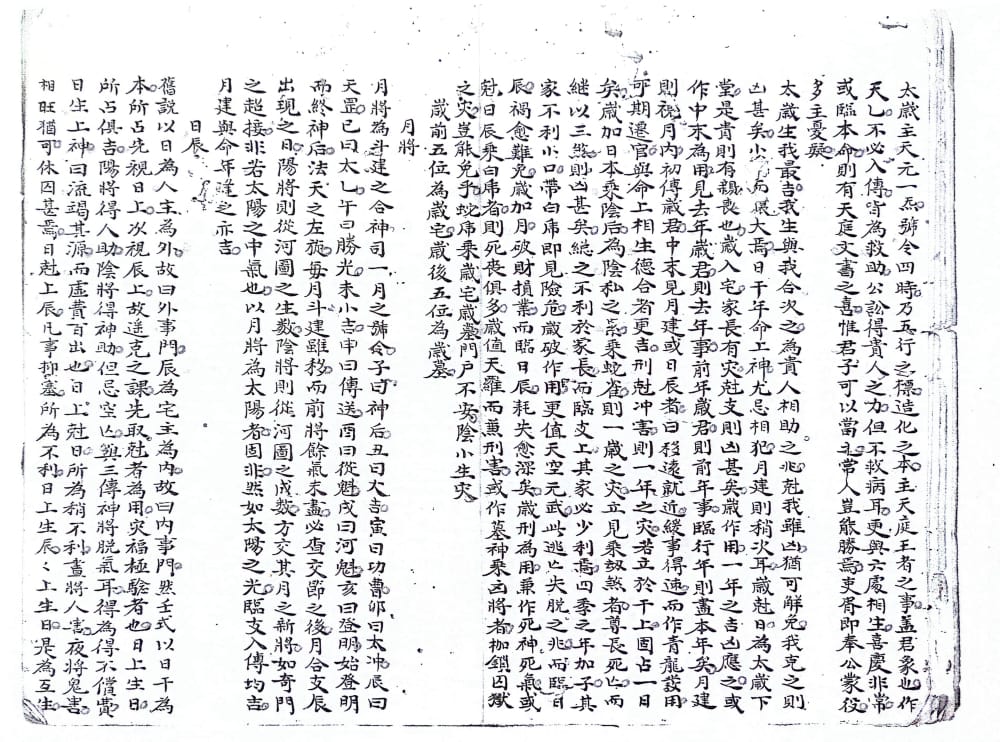 太歲主天元一炁號令四時乃五行之標造化之本主天庭王者之事盖君象也作
天乙不必入傳皆為救助公訟得貴人之力但不救病耳更與六處相生喜慶非常
或臨本命則有天庭文書之喜惟君子可以當之常人豈能勝焉吏胥即奉公蒙役
多主憂疑
太歲生我最吉我生與我合次之為貴人相助之兆尅我雖凶猶可解免我克之則
凶甚矣小 大焉日干年命上神尤忌相犯月建則稍次耳歲尅日為太歲下
堂是貴則有親喪也歲入宅家長有灾尅支則凶甚矣歲作用一年之吉凶應之或
作中末為用見去年歲君則去年事前年歲君則前年事臨行年則盡本年矣月建
則視月内初傳歲君中末見月建或日辰者曰移遠就近緩事得速而作青龍發用
可期遷官與命上相生德合者更吉刑尅冲害則一年之灾若立於干上圖占一日
矣歲加日本乘陰后為陰私之 乘蛇雀則一歲之灾立見乘劫煞者尊長死亡而
継以三煞則凶甚矣緫之不利於家長而臨支上其家必少利焉四季之年加子其
家不利小口帶白虎即見險危歲破作用更值天空元武此逃亡失脫之兆而臨日
辰禍愈難免歲加月破財損業而臨日辰耗失愈深矣歲刑為用兼作死神死氣或
尅日辰乘白虎者則死喪俱多歲值天羅而兼刑害或作墓神乘凶將者枷鎖囚獄
之灾豈能免乎蛇虎乘歲宅歲墓門戶不安陰小生灾
歲前五位為歲宅歲後五位為歲墓
月將
月將為斗建之合神司一月之號令子曰神后丑曰大吉寅曰功曹卯曰太冲辰曰
天罡巳曰太乙午曰勝光未小吉申曰傳送酉曰從魁戌曰河魁亥曰登明始登明
而終神后法天之左旋每月斗建雖移而前將餘氣未盡必查交節之後月合支辰
出現之日陽將則從河圖之生數陰將則從河圖之成數方交其月之新將如奇門
之超接非若太陽之中氣也以月將為太陽者固非然如太陽之光臨支入傳均吉
月建與命年逢之亦吉
日辰
舊說以日為人主為外故曰外事門辰為宅主為内故曰内事門然壬式以日干為
本所占先視日上次視辰上故進克之課先取尅者為用灾福極驗者也日上生日
所占俱吉陽將得人助陰將得神助但忌空亡與三傳神將脫氣耳得為得不償費
日生上神曰流竭其源而虛費百出也日上尅日所為稍不利晝將人害夜將鬼害
相旺猶可休囚甚焉日尅上辰凡事抑塞所為不利日上生辰辰上生日是為互生